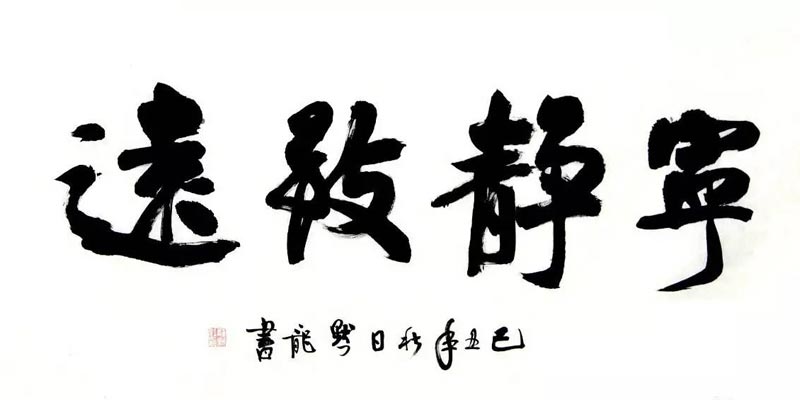 寧靜致遠
己丑年秋日龍書